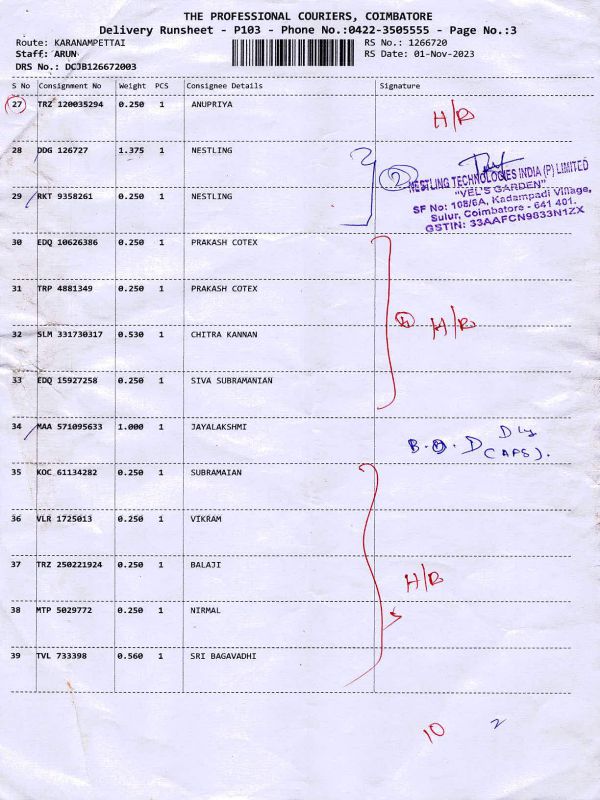 THE PROFESSIONAL COURIERS, COIMBATORE
Delivery Runsheet - P103 - Phone No.:0422-3505555 - Page No.:3
Route: KARANAMPETTAI RS No.: 1266720
Staff: ARUN RS Date: 01-Nov-2023
DRS No.: DCJB126672003
S No Consignment No Weight PCS Consignee Details Signature
27 TRZ 120035294 0.250 1 ANUPRIYA
H/R
28 DDG 126727 1.375 1 NESTLING
2
NESTLING TECHNOLOGIES INDIA (P) LIMITED
"VEL'S GARDEN"
SF No: 108/6A, Kadampadi Village,
Sulur, Coimbatore - 641 401.
GSTIN: 33AAFCN9833N1ZX
29 RKT 9358261 0.250 1 NESTLING
30 EDQ 10626386 0.250 1 PRAKASH COTEX
31 TRP 4881349 0.250 1 PRAKASH COTEX
H/R
32 SLM 331730317 0.530 1 CHITRA KANNAN
33 EDQ 15927258 0.250 1 SIVA SUBRAMANIAN
34 MAA 571095633 1.000 1 JAYALAKSHMI
Dly
(APS).
35 KOC 61134282 0.250 1 SUBRAMAIAN
36 VLR 1725013 0.250 1 VIKRAM
37 TRZ 250221924 0.250 1 BALAJI
H/R
38 MTP 5029772 0.250 1 NIRMAL
39 TVL 733398 0.560 1 SRI BAGAVADHI
10 2